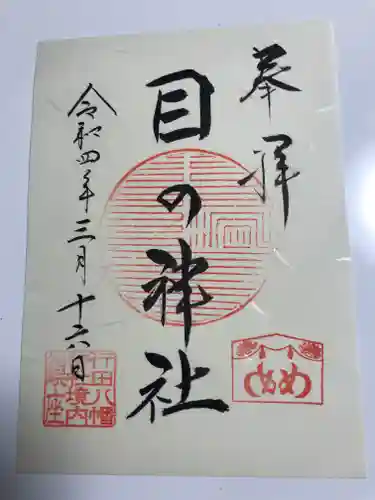 奉拝
目の神社
令和四年三月十六日
めめ
行田八幡
境内
鎮座